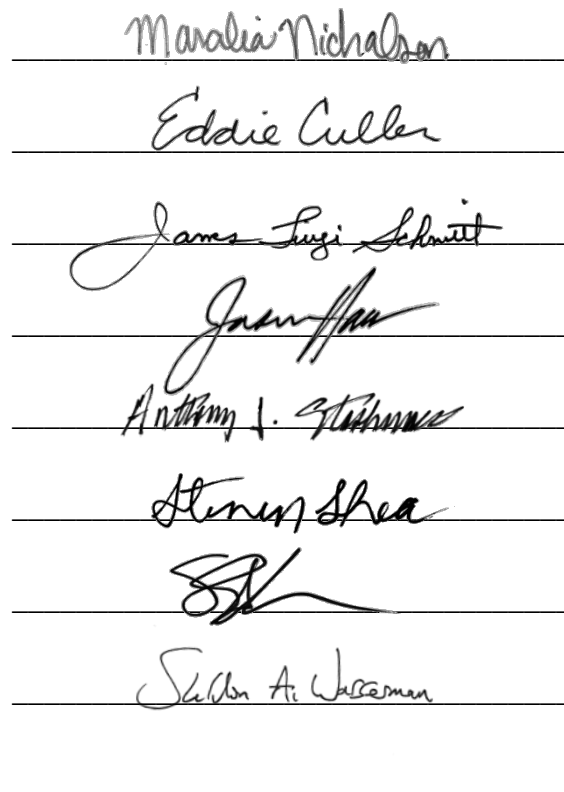 Maralia Nicholson
Eddie Cullen
James Luigi Schmitt
Jason Haas
Anthony J.
Steven Shea
Sheldon A. Wasserman